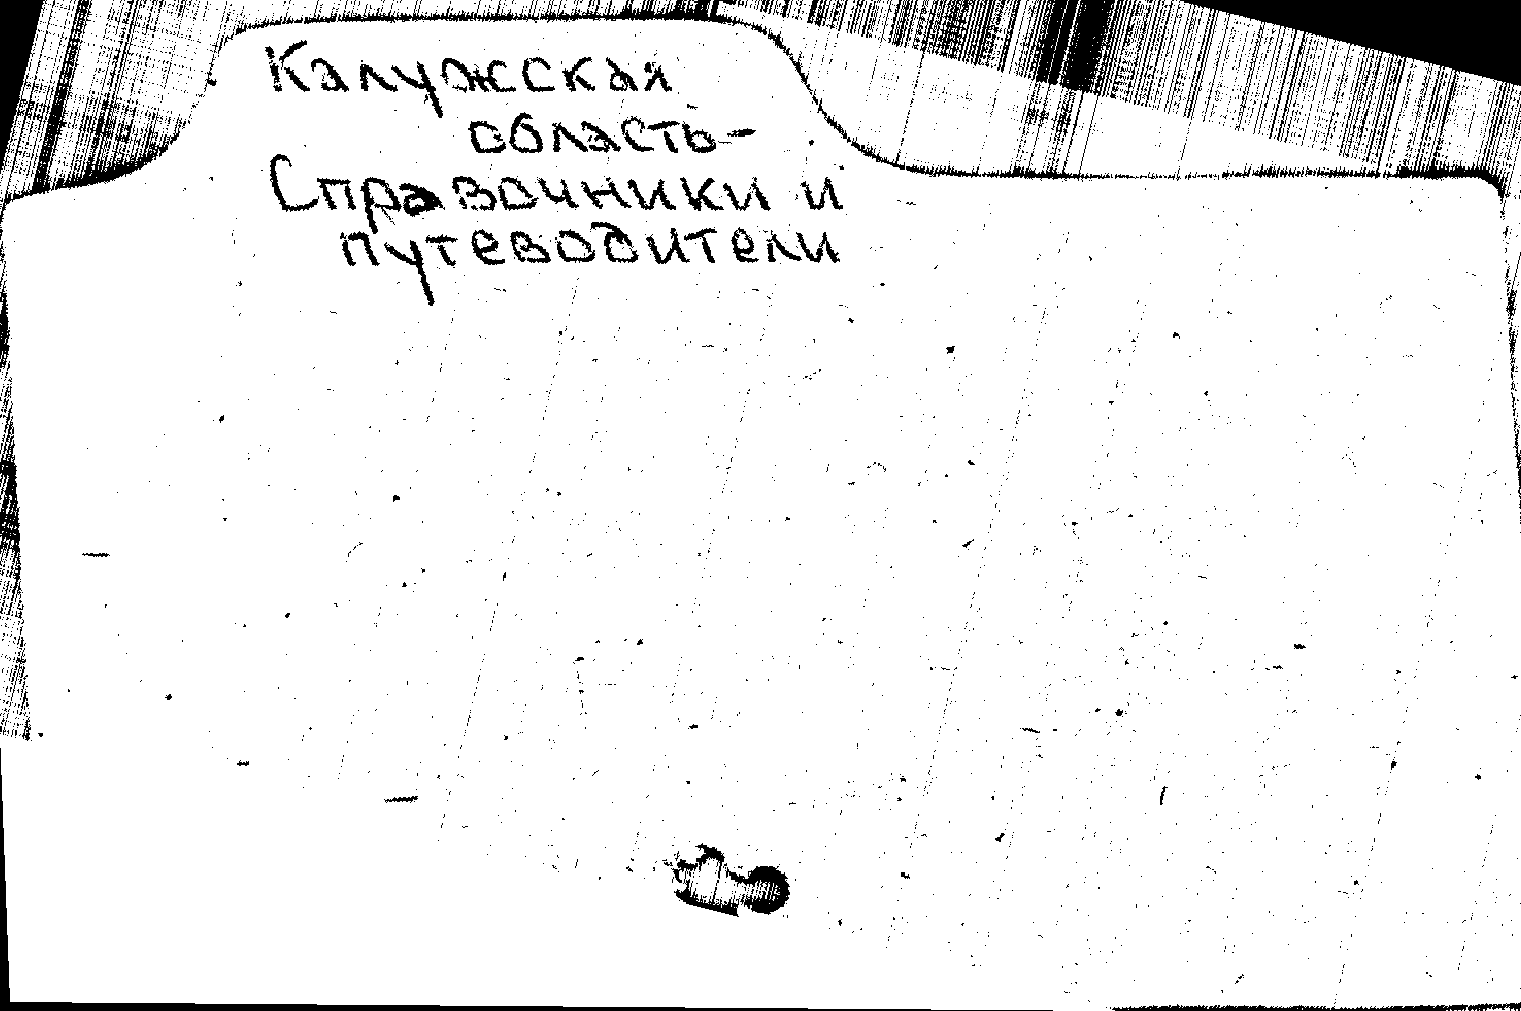 Калужская
область-
Справочники и
путеводители